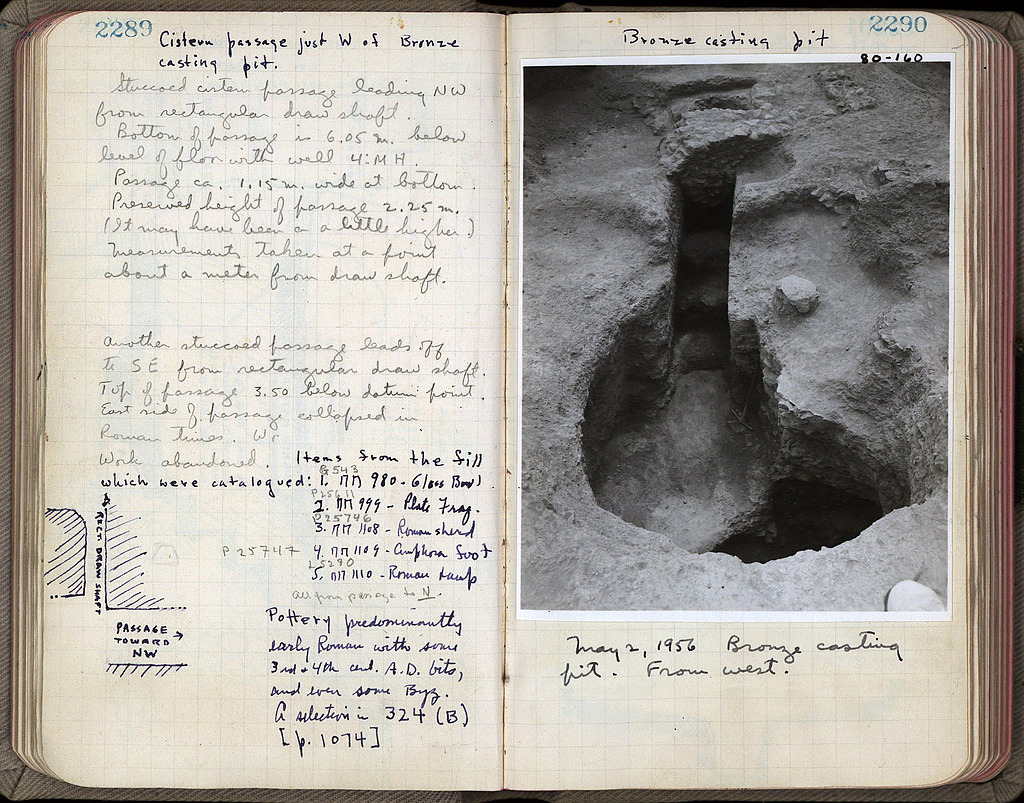 2289
Cistern passage just W of Bronze
casting pit.
Stuccoed cistern passage leading NW
from rectangular draw shaft.
Bottom of passage is 6.05 m. below
level of floor with well 4:MH.
Passage ca. 1.15 m. wide at bottom.
Preserved height of passage 2.25 m.
(It may have been a a little higher.)
Measurements taken at a point
about a meter from draw shaft.
Another stuccoed passage leads off
to SE from rectangular draw shaft.
Top of passage 3.50 below datum point.
East side of passage collapsed in
Roman times. Wr
Work abandoned. Items from the fill
which were catalogued:
G 543
1. ΠΠ 980 - Glass Bowl
P25611
2. ΠΠ 999 - Plate Frag.
P25746
3. ΠΠ 1108 - Roman sherd
P 25747 4. ΠΠ 1109 - Amphora foot
L5290
5. ΠΠ 1110 - Roman Lamp
All from passage to N.
RECT. DRAW SHAFT
PASSAGE
TOWARD
NW
Pottery predominantly
early Roman with some
3rd + 4th cent. A.D. bits,
and even some Byz.
A selection in 324 (B)
[p. 1074]
2290
Bronze casting pit
80-160
May 2, 1956 Bronze casting
pit. From west.